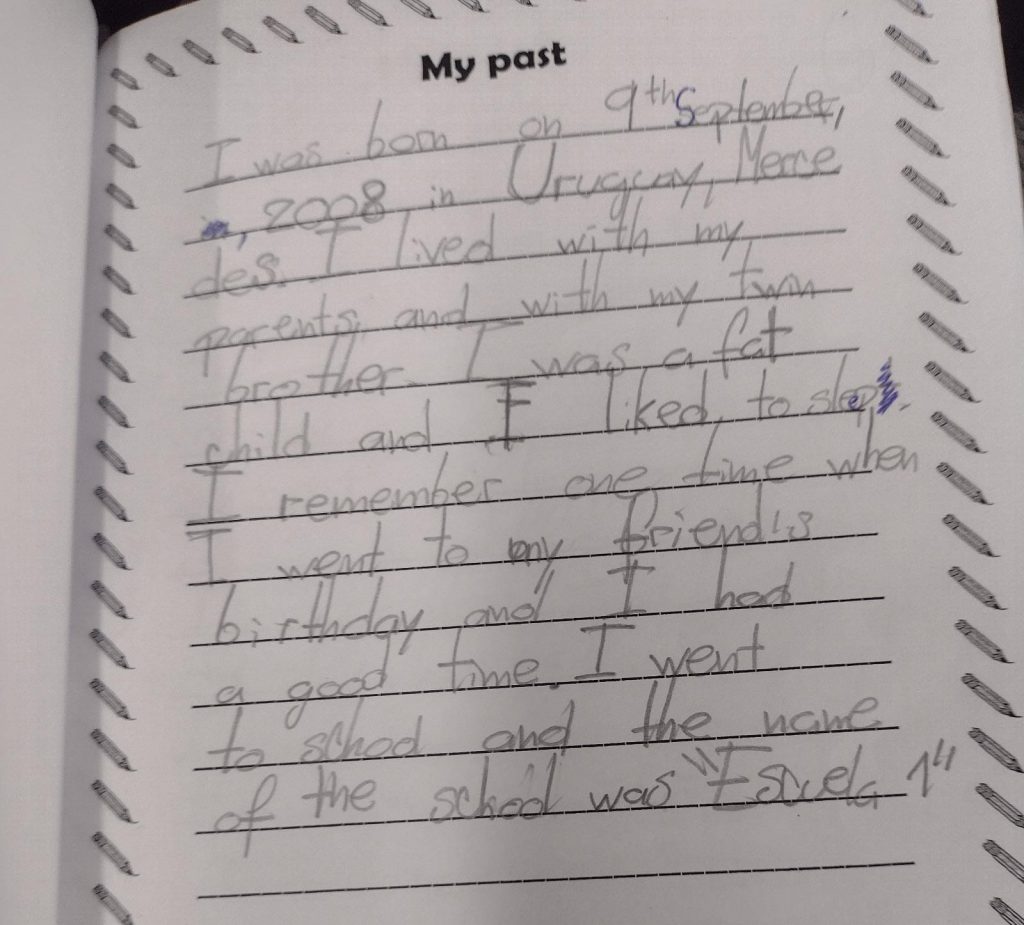 My past
I was born on 9th September,
, 2008 in Uruguay, Merce
des. I lived with my
parents, and with my twin
brother. I was a fat
child and I liked to slep.
I remember one time when
I went to my friend's
birthday and I had
a good time. I went
to school and the name
of the school was "Escuela 1"